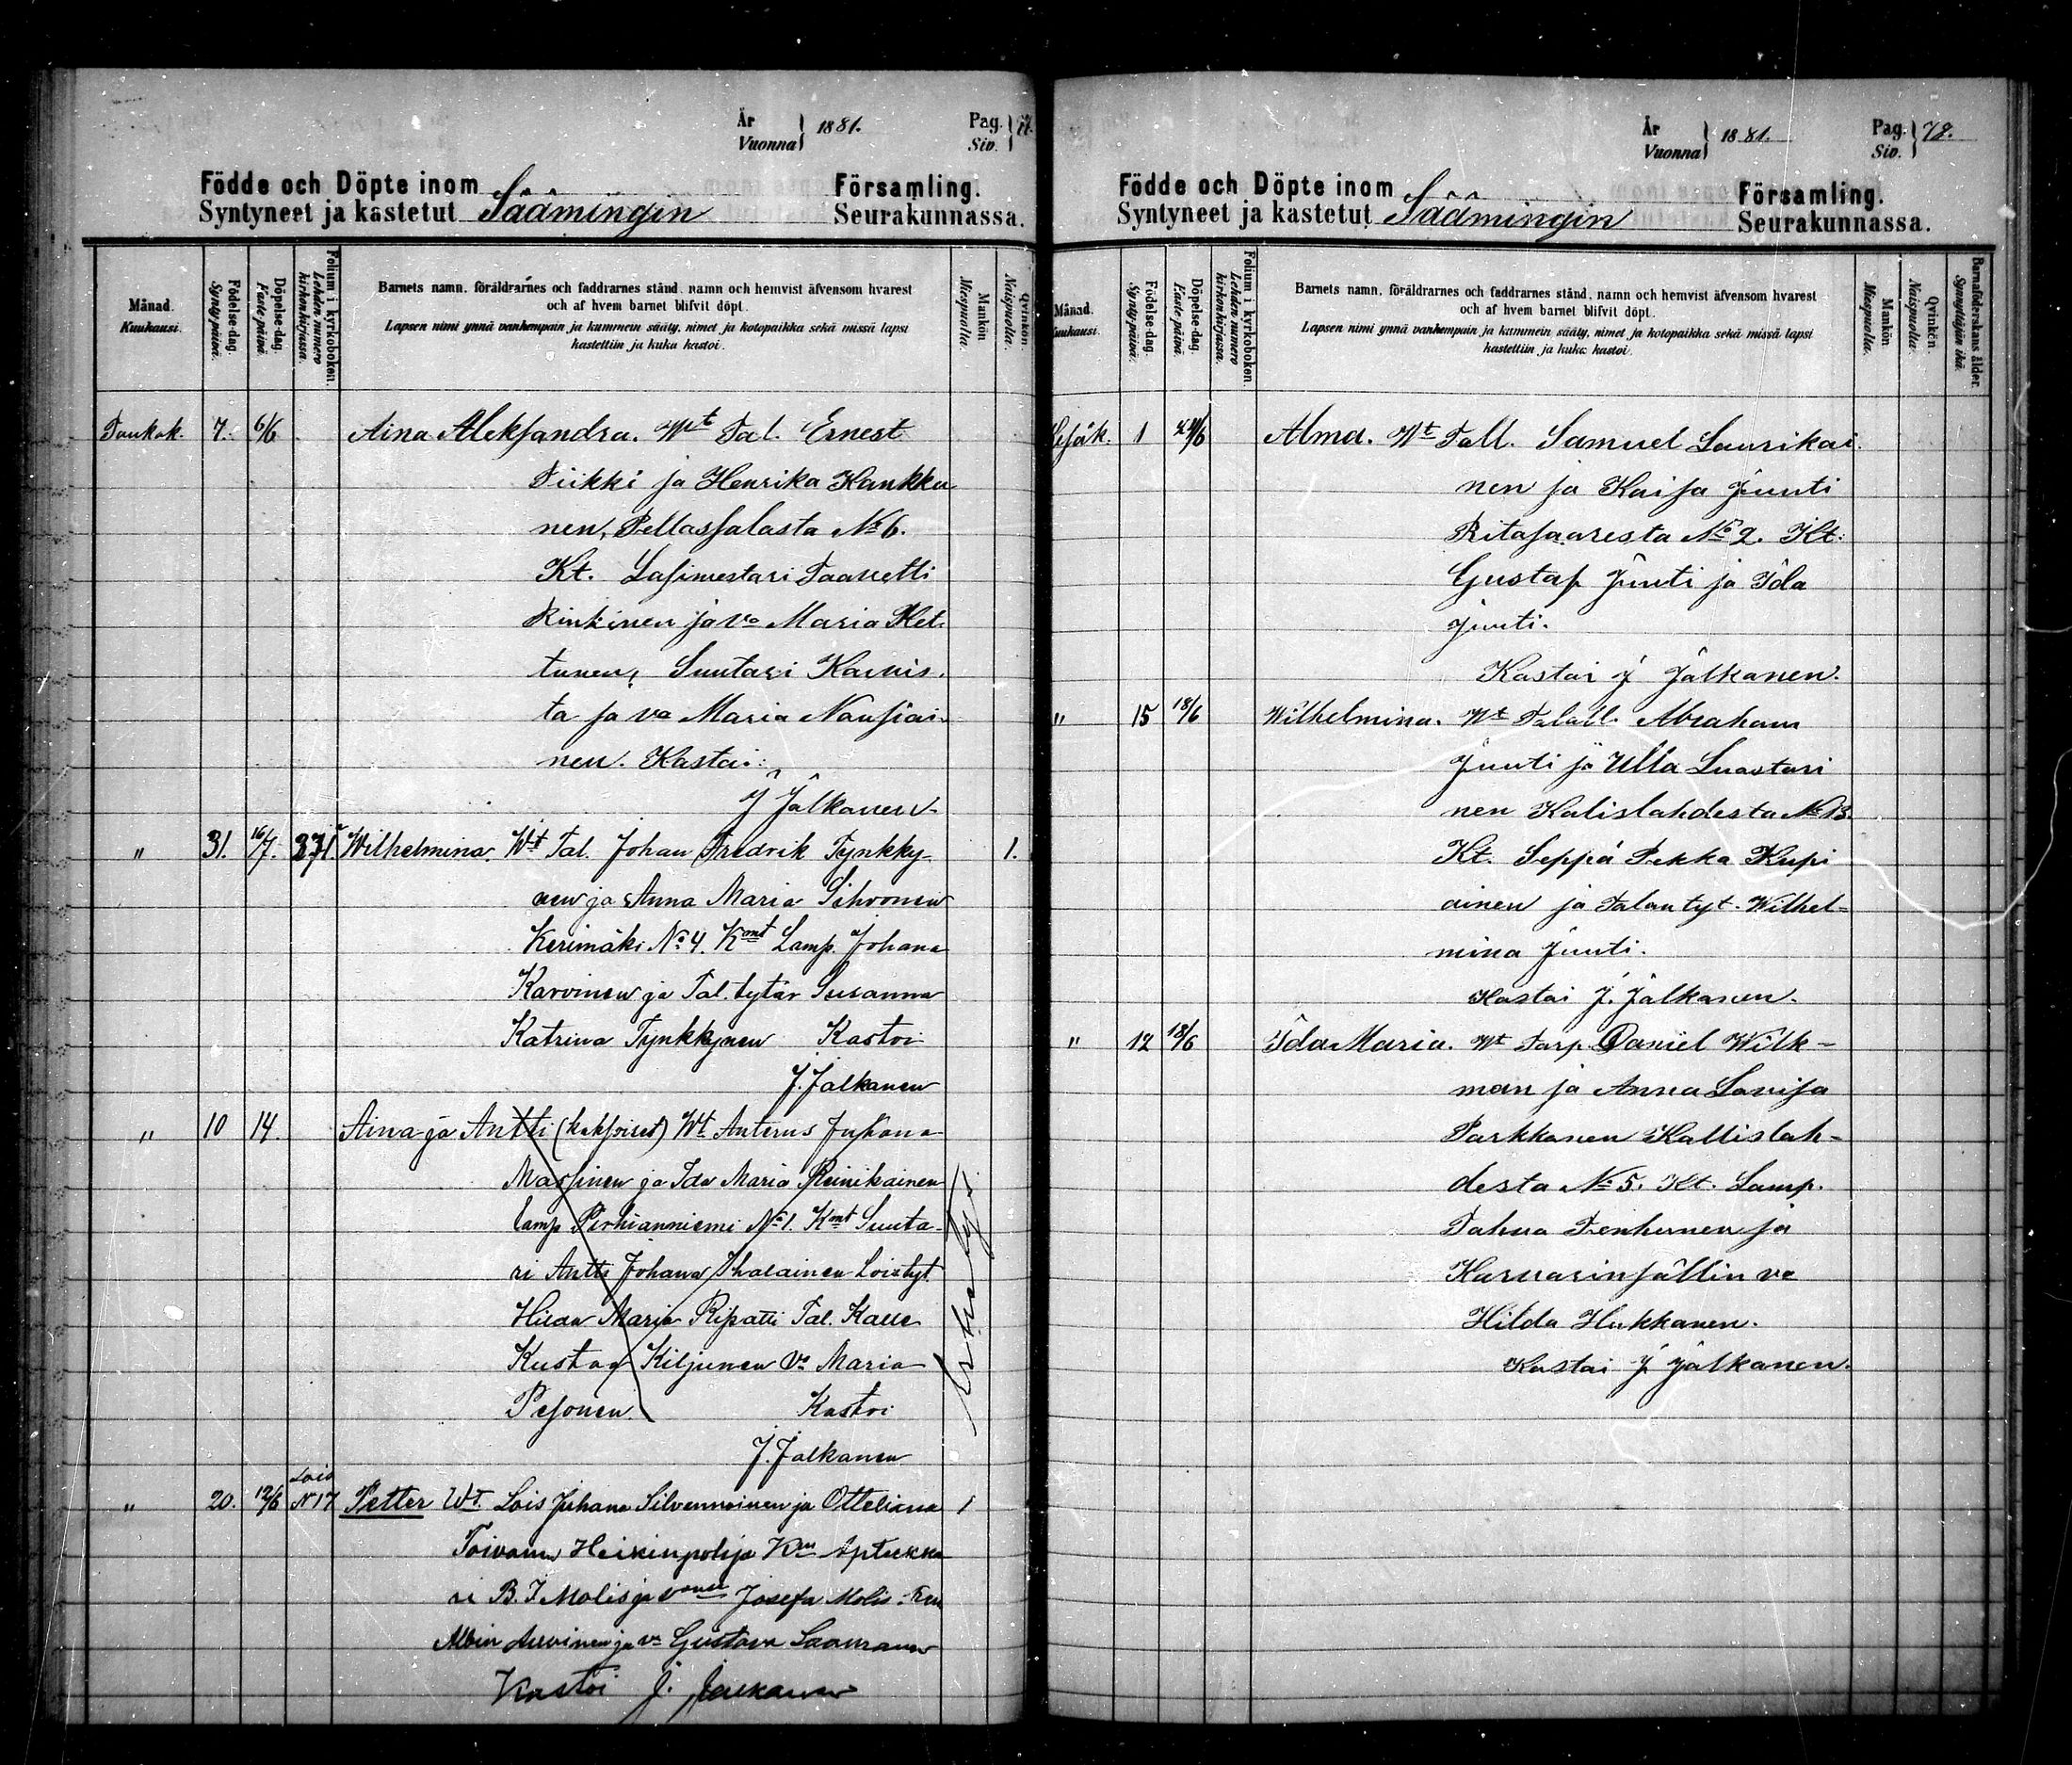 År
Vuonna } 1881.
Pag.
Siv. } 77.
Födde och Döpte inom
Syntyneet ja kastetut Säämingin
Församling.
Seurakunnassa.
Månad.
Kuukausi.
Födelse-dag.
Synty-päivä.
Döpelse-dag.
Kaste-päivä
Folium i kyrkoboken.
Lehden numero
kirkonkirjassa.
Barnets namn, föräldrarnes och faddrarnes stånd, namn och hemvist äfvensom hvarest
och af hvem barnet blifvit döpt.
Lapsen nimi ynnä vanhempain ja kummein sääty, nimet ja kotopaikka sekä missä lapsi
kastettiin ja kuka kastoi.
Mankön
Miespuolia.
Qvinkön.
Naispuolia.
Toukok. 7. 6/6 Aina Aleksandra. Wt Tal. Ernest
Tiikki ja Henrika Kankku
nen, Pellossalosta No 6.
Kt. Lasimestari Taavetti
Rinkinen ja vo Maria Ket-
tunen, Suutari
ta ja vo Maria Nousiai-
nen. Kastoi:
J Jalkanen
" 31. 16/7. 371. Wilhelmina. Wt Tal. Johan Fredrik Tynkky- 1.
nen ja Anna Maria Sihvonen
Kerimäki No 4. Kmt Lamp. Johana
Karvinen ja Tal. tytär Susanna
Katrina Tynkkynen Kastoi
J. Jalkanen
" 10 14. Aina ja Antti (kaksoiset) Wt Anterus Juhana
Massinen ja Ida Maria Reinikainen
lamp Pirhianniemi No 1. Kmt Suuta-
ri Antti Johana Ihalainen Loistyt
Maria Ripatti Tal. Kalle
Kustaf Kiljunen Vo Maria
Pesonen. Kastoi
J. Jalkanen
" 20. 12/6 Lois
N 17 Petter Wt. Lois Juhana Silvennoinen ja Otteliana 1
Toivanen Heikinpohja Km Aptekka
ri B. I Molis ja vonsa Josefa Molis: Ren
Albin ja vo Gustava
Kastoi J. Jalkanen
År
Vuonna } 1881.
Pag.
Siv. } 78.
Födde och Döpte inom
Syntyneet ja kastetut Säämingin
Församling.
Seurakunnassa.
Månad.
Kuukausi.
Födelse-dag.
Synty-päivä.
Döpelse-dag.
Kaste-päivä
Folium i kyrkoboken.
Lehden numero
kirkonkirjassa.
Barnets namn, föräldrarnes och faddrarnes stånd, namn och hemvist äfvensom hvarest
och af hvem barnet blifvit döpt.
Lapsen nimi ynnä vanhempain ja kummein sääty, nimet ja kotopaikka sekä missä lapsi
kastettiin ja kuka kastoi.
Mankön
Miespuolia.
Qvinkön.
Naispuolia.
Barnaföderskans ålder.
Synnyttäjän ikä.
Kesäk. 1 Alma. Wt Tall. Samuel Laurikai-
nen ja Kaisa Juuti
Ritasaaresta No 2. Kt:
Gustaf Juuti ja Ida
Juuti.
Kastoi J Jalkanen.
" 15 18/6 Wilhelmina. Wt Talall. Abraham
Juuti ja Ulla Luostari
nen Kalislahdesta No 13.
Kt. Seppä Pekka Kupi
ainen ja Talontyt. Wilhel-
mina Juuti.
Kastoi J. Jalkanen.
" 12 18/6 Ida Maria. Wt Torp. Daniel Wilk-
man ja Anna Lovisa
Parkkonen Kallislah-
desta No 5. Kt. Lamp.
Pahna Tenhunen ja
Karvarinsällin vo
Hilda Hukkanen.
Kastoi J. Jalkanen.